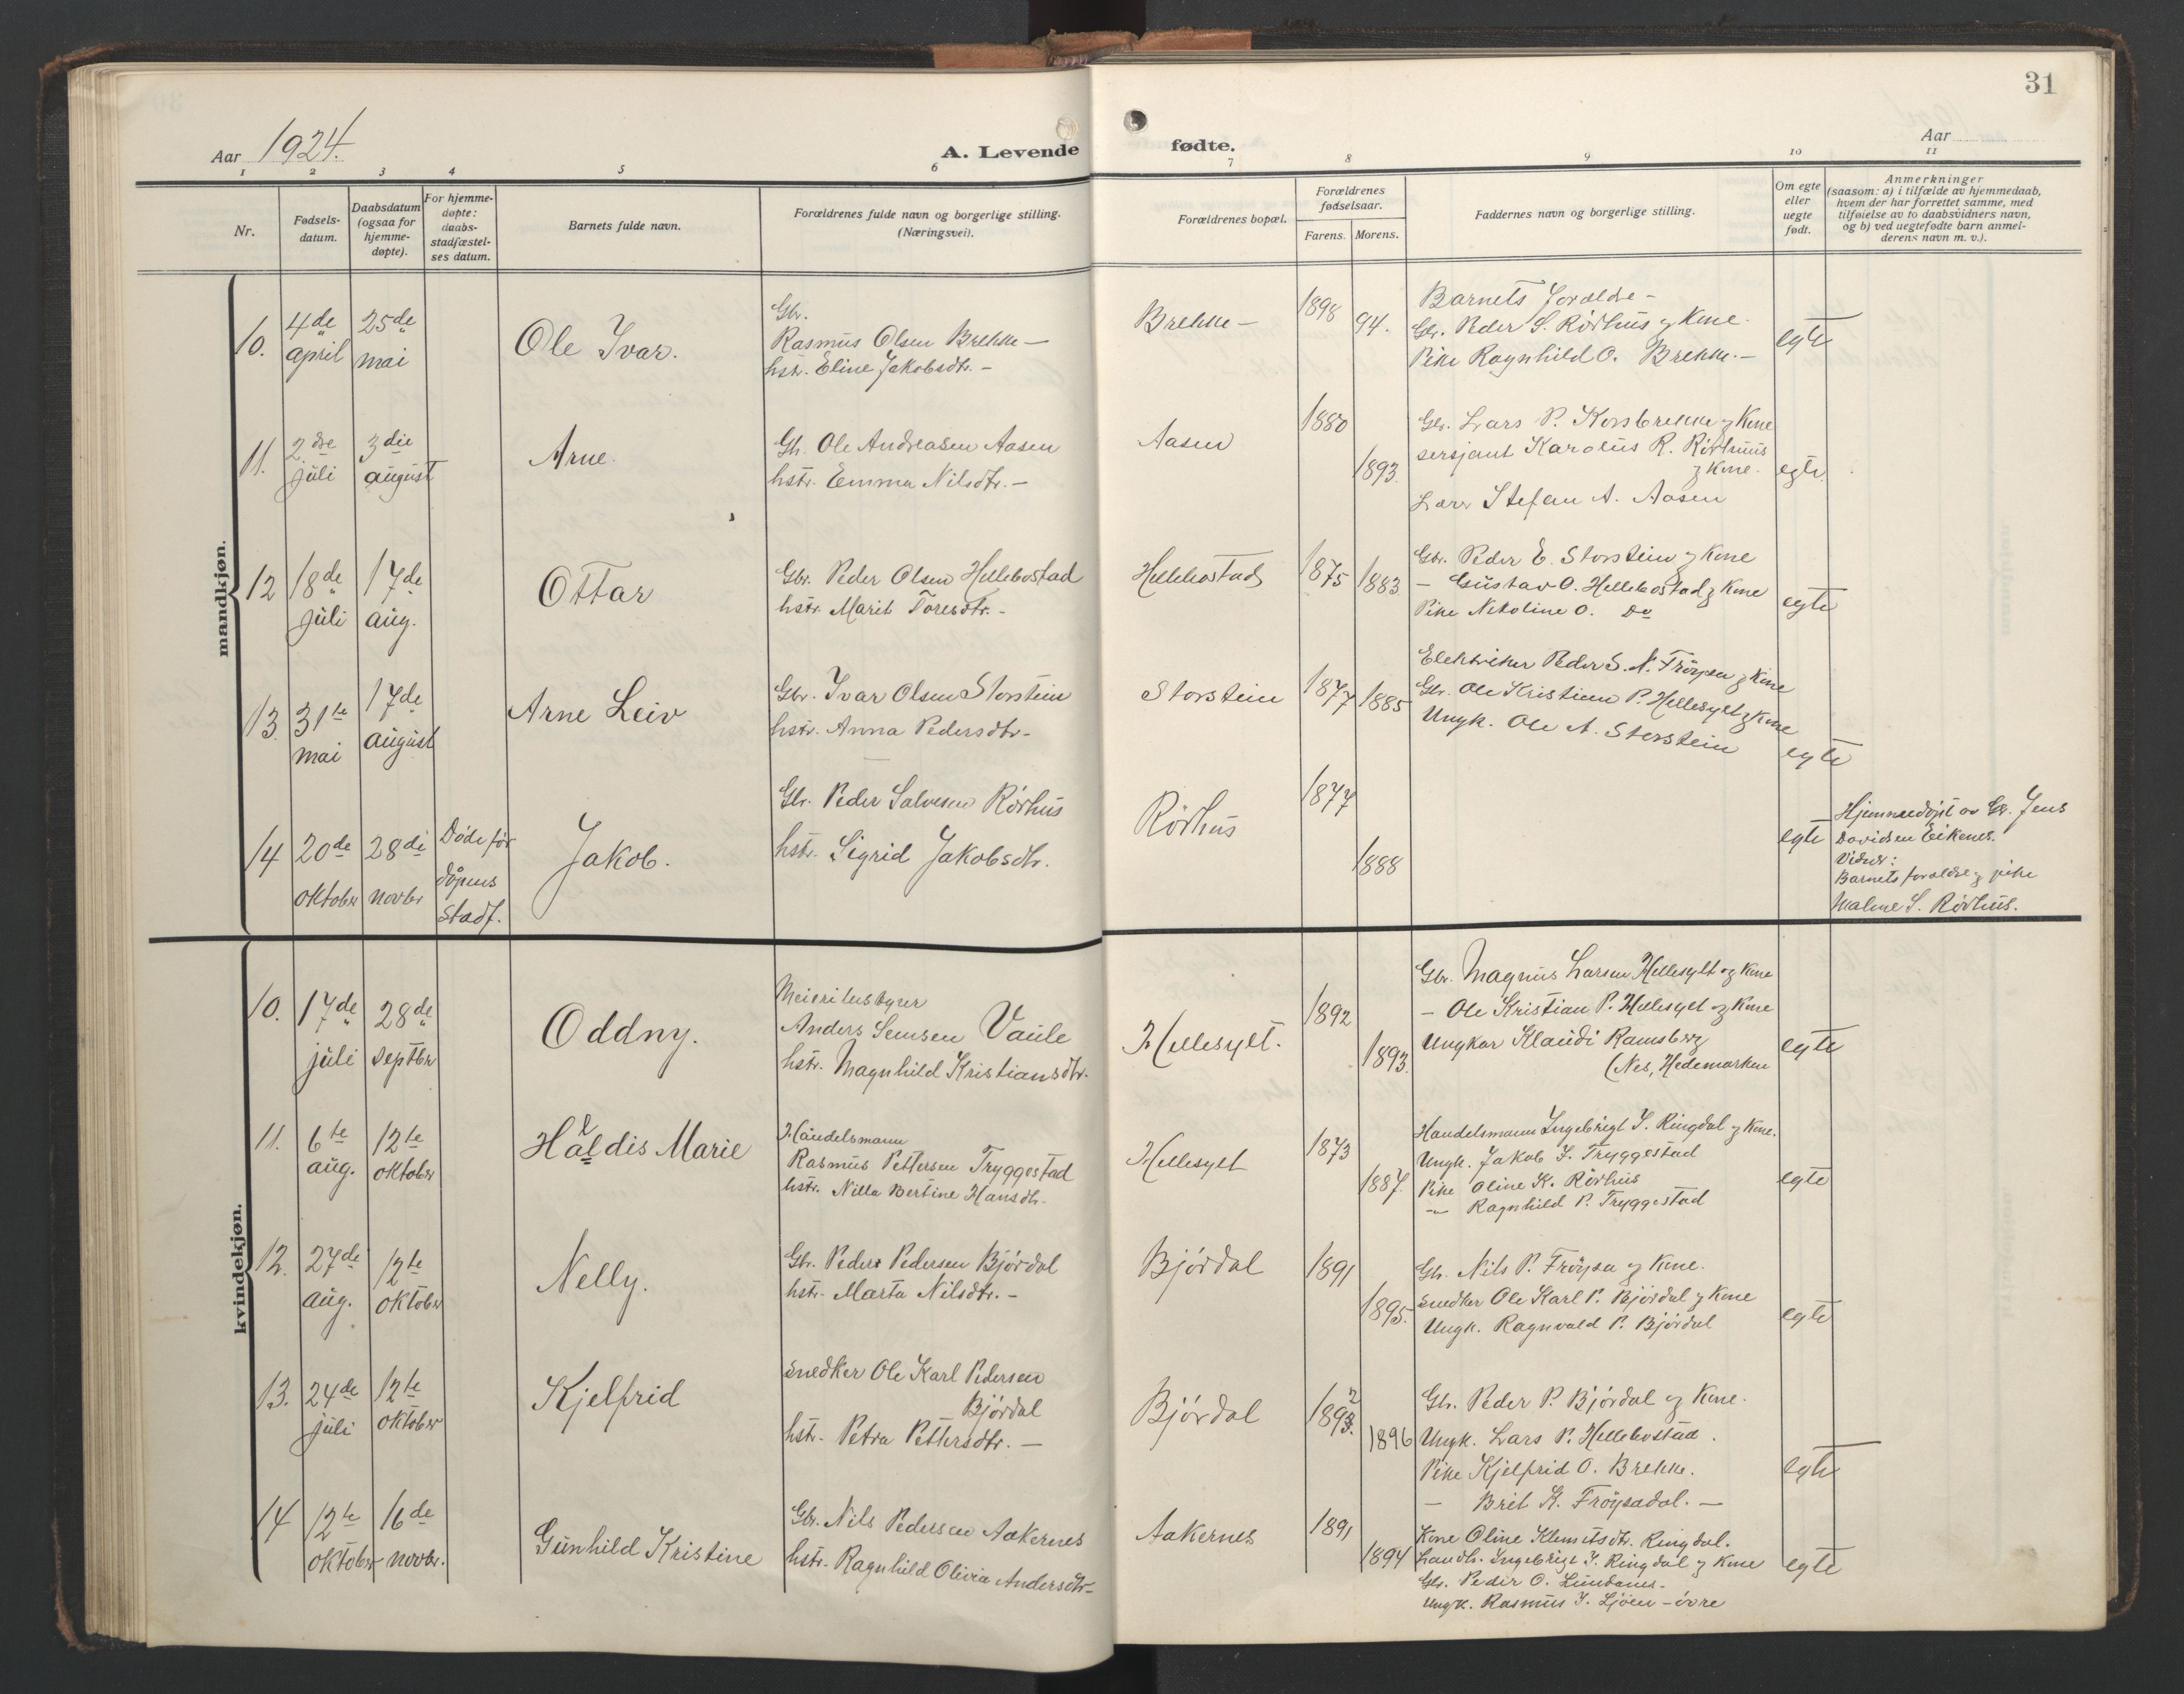 31
Aar 1924.
A. Levende fødte.
Aar
1 2 3 4 5 6 7 8 9 10 11
Nr.
Fødsels-
datum.
Daabsdatum
(ogsaa for
hjemme-
døpte).
For hjemme-
døpte:
daabs-
stadfæstel-
ses datum.
Barnets fulde navn.
Forældrenes fulde navn og borgerlige stilling.
(Næringsvei).
Forældrenes bopæl.
Forældrenes
fødselsaar.
Farens. Morens.
Faddernes navn og borgerlige stilling.
Om egte
eller
uegte
født.
Anmerkninger
(saasom: a) i tilfælde av hjemmedaab,
hvem der har forrettet samme, med
tilføielse av to daabsvidners navn,
og b) ved uegtefødte barn anmel-
derens navn m. v.).
mandkjøn.
10.
4de
april
25de
mai
Ole Ivar.
Gbr.
Rasmus Olsen Brekke —
hstr. Eline Jakobsdtr. —
Brekke —
1898
94.
Barnets Forældre —
Gbr. Peder S. Rörhus og Kone.
Pike Ragnhild O. Brekke. —
egte
11.
2dre
juli
3die
august
Arne.
Gb. Ole Andreasen Aasen
hstr. Emma Nilsdtr. —
Aasen
1880
1893.
Gbr. Lars P. Korsbrekke og Kone
sersjant Karolus R. Rörhuus
og Kone.
Lærer Stefan A. Aasen
egte.
12
18de
juli
17de
aug.
Ottar
Gbr. Peder Olsen Hellebostad
hstr. Marit Toresdtr. —
Hellebostad
1875
1883.
Gbr. Peder E. Storstein og Kone
— Gustav O. Hellebostad og Kone
Pike Nikoline O. Do
egte
13.
31te
mai
17de
august
Arne Leiv
Gbr. Ivar Olsen Storstein
hstr. Anna Pedersdtr —
Storstein
1877
1885
Elektriker Peder S. N. Fröysa og Kone
Gbr. Ole Kristian P. Hellesylt og Kone
Ungk. Ole A. Storstein
egte
14
20de
oktober
28de
novbr
Döde för
döpens
stadf.
Jakob.
Gbr. Peder Salvesen Rörhus
hstr. Sigrid Jakobsdtr.
Rörhus
1877
1888
egte
Hjemmedöpt av Gbr. Jens
Davidsen Eikenes.
Vidner:
Barnets forældre og pike
Malene S. Rörhus.
kvindekjøn.
10.
17de
juli
28de
septbr
Oddny.
Meieribestyrer
Anders Semsen Vaule
hstr. Magnhild Kristiansdtr.
Hellesylt.
1892
1893.
Gbr. Magnus Larsen Hellesylt og Kone
— Ole Kristian P. Hellesylt og Kone
Ungkar Klaudi Ramsberg
(Nes, Hedemarken
egte
11.
6te
aug.
12te
oktober
Haldis Marie
Handelsmann
Rasmus Pettersen Tryggestad
hstr. Nilla Bertine Hansdtr.
Hellesylt
1873
1887.
Handelsmann Ingebrigt I. Ringdal og Kone.
Ungk. Jakob I. Tryggestad
Pike Oline K. Rörhus
— Ragnhild P. Tryggestad
egte
12.
27de
aug.
12te
oktober
Nelly.
Gbr. Peder Pedersen Bjørdal
hstr. Marta Nilsdtr. —
Bjórdal
1891
1895.
Gbr. Nils P. Fröysa og Kone.
snedker Ole Karl P. Bjórdal og Kone
Ungk. Ragnvald P. Bjórdal
egte
13.
24de
juli
12te
oktober
Kjelfrid
snedker Ole Karl Pedersen
Bjórdal
hstr. Petra Pettersdtr. —
Bjórdal
1892
1896
Gbr. Peder P. Bjórdal og Kone.
Ungk. Lars P. Hellebostad.
Pike Kjelfrid O. Brekke.
— Brit K. Fröysadal. —
egte
14
12te
oktober
16de
novbr.
Gunhild Kristine
Gbr. Nils Pedersen Aakernes
hstr. Ragnhild Olivia Andersdtr —
Aakernes
1891
1894
Kone Oline Klemetsdtr. Ringdal.
Landh. Ingebrigt I. Ringdal og Kone
Gbr. Peder O. Lundanes.
Ungk. Rasmus I. Ljöen — övre
egte